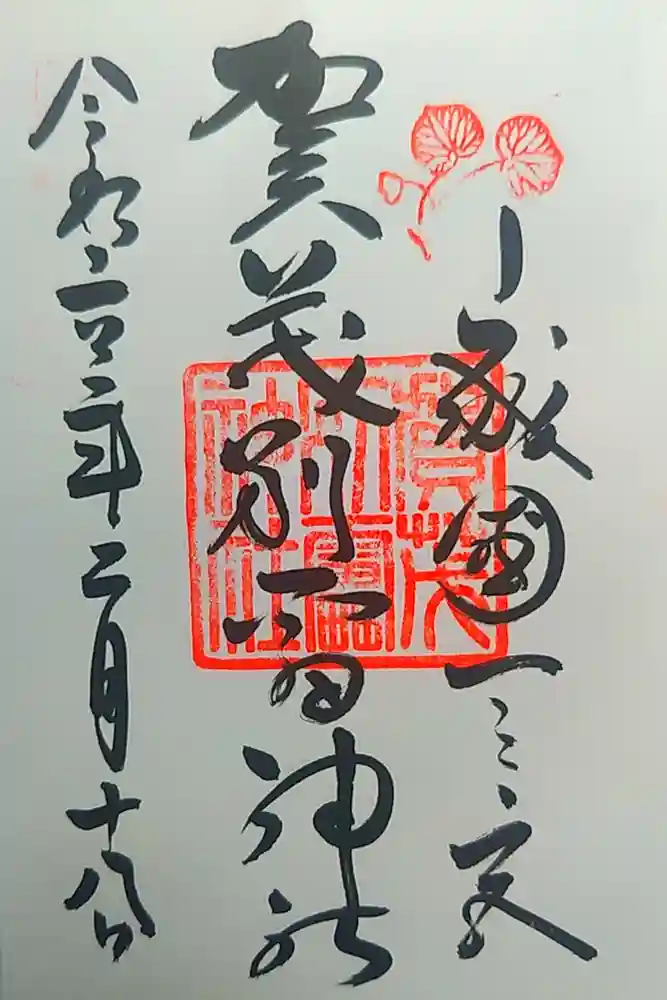 山城國一之宮
賀茂別雷神社
令和年二月十八日
賀茂
別雷
神社